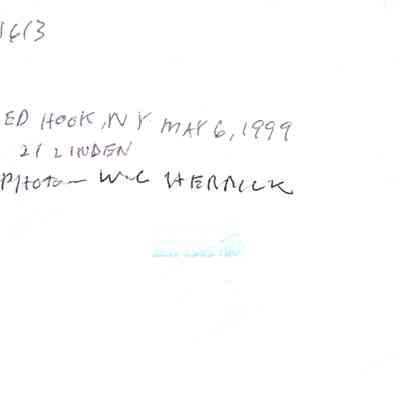 1613
ED HOOK, NY MAY 6, 1999
21 LINDEN
PHOTO— WC HERRICK